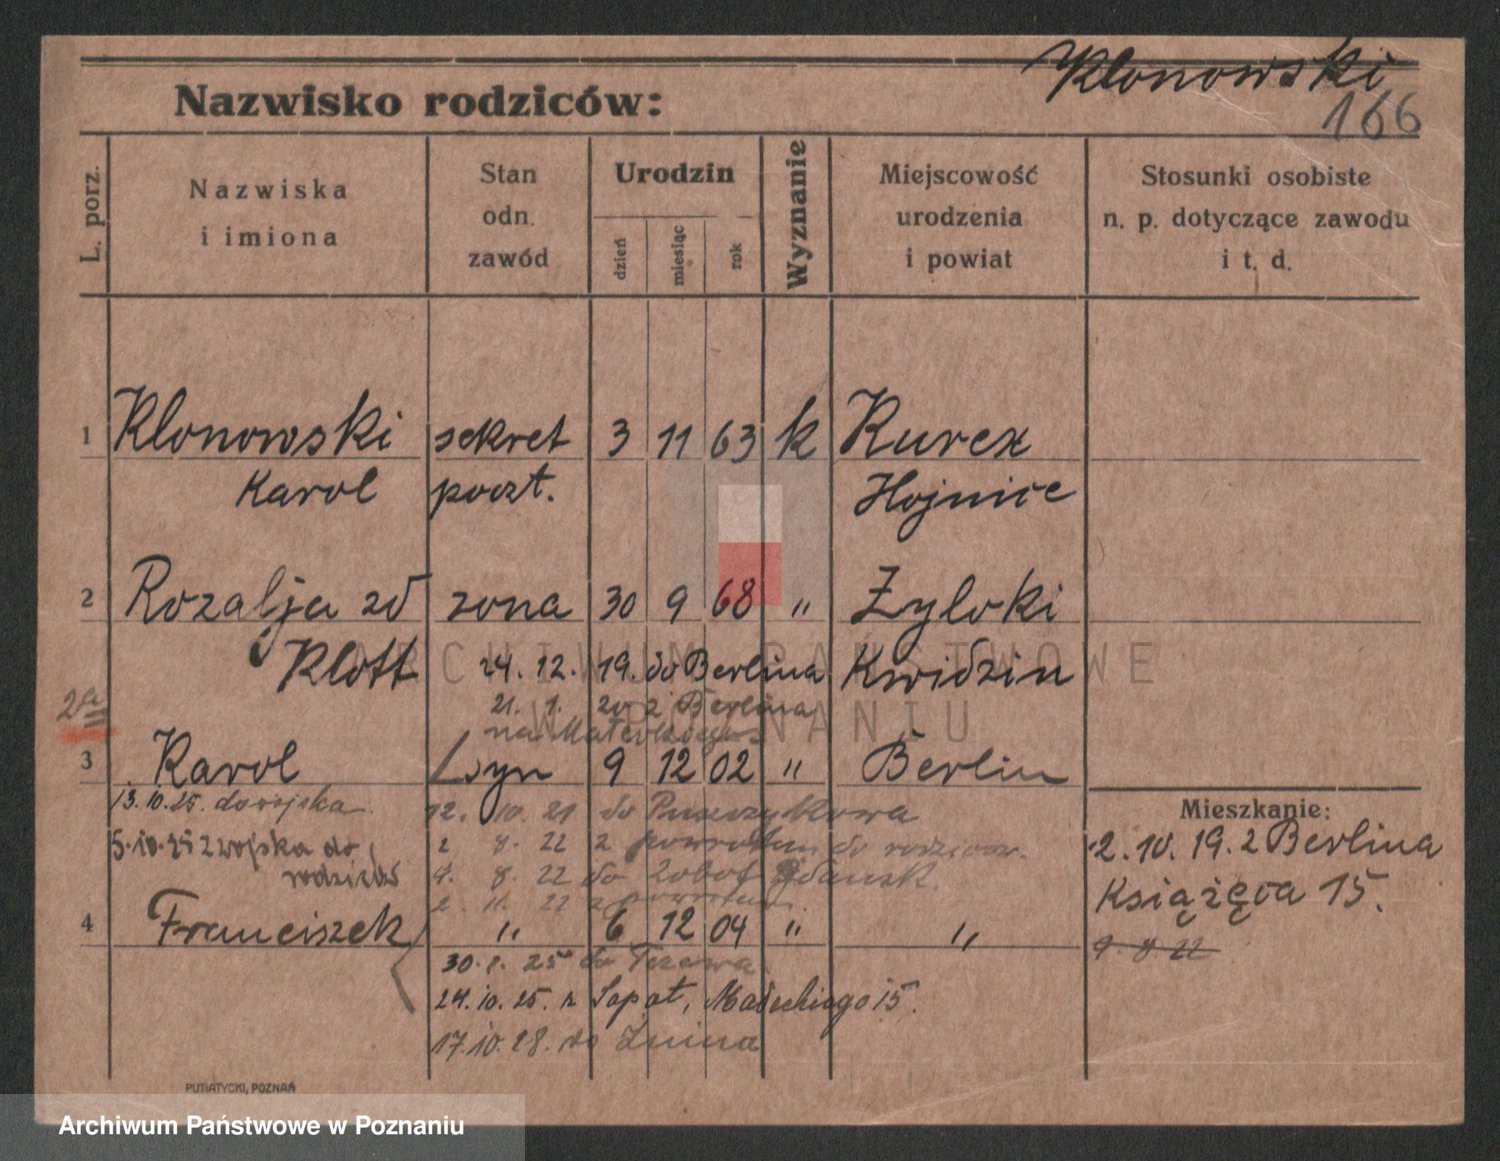 Klonowski
166
Nazwisko rodziców:
L. porz.
Nazwiska
i imiona
Stan
odn.
zawód
Urodzin
dzień
miesiąc
rok
Wyznanie
Miejscowość
urodzenia
i powiat
Stosunki osobiste
n. p. dotyczące zawodu
i t. d.
1 Klonowski sekret 3 11 63 k Kurex
Karol poczt. Hojnice
2 Rozalja zd zona 30 9 68 " Zyloki
Klott 24. 12. 19. do Berlina Kwidzin
21. 1. 20 z Berlina
na
3 Karol Syn 9 12 02 " Berlin
13. 10. 25. do wojska 12. 10. 21 do Puszczykowa
Mieszkanie:
5.10.25 z wojska do 2 8. 22 z powrotem do rodziców.
2. 10. 19. z Berlina
rodziców 4. 8. 22 do Gdańsk.
Książęca 15.
2. 11. 22 z powrotem.
4 Franciszek " 6 12 04 " "
9 8 22
30. 8. 25 do
24. 10. 25. z Małeckiego 15.
17. 10. 28. do Żnina
PUTIATYCKI, POZNAŃ
ARCHIWUM PAŃSTWOWE
W POZNANIU
Archiwum Państwowe w Poznaniu